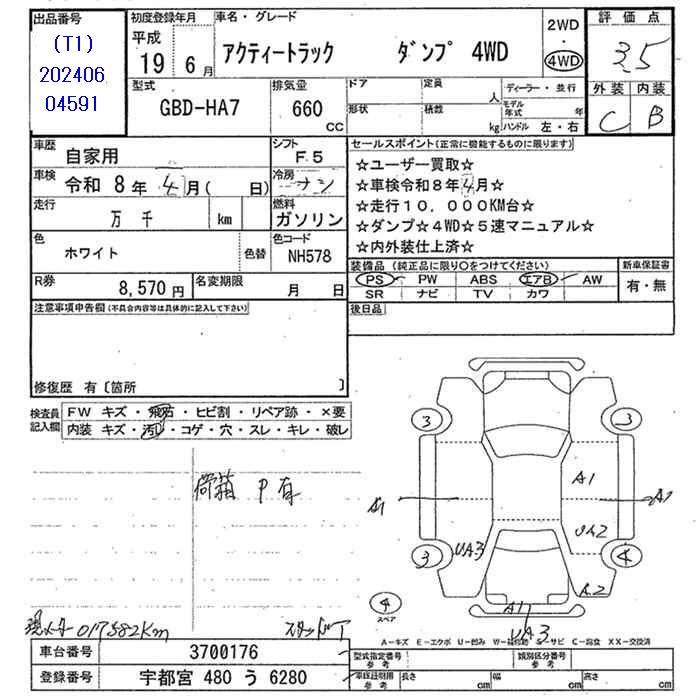 出品番号
(T1)
202406
04591
初度登録年月
平成
19 6 月
車名・グレード
アクティートラック ダンプ 4WD
2WD
・
4WD
評価点
3.5
外装 内装
C B
型式
GBD-HA7
排気量
660
CC
ドア
形状
定員
人
積載
kg
ディーラー・並行
モデル年式 年
ハンドル 左・右
車歴
自家用
シフト
F5
車検
令和 8 年 4 月 ( 日)
冷房
ナシ
走行
万 千 km
燃料
ガソリン
色
ホワイト
色替
色コード
NH578
R券
8,570 円
名変期限
月 日
セールスポイント(正常に機能するものに限ります)
☆ユーザー買取☆
☆車検令和8年4月☆
☆走行10,000KM台☆
☆ダンプ☆4WD☆5速マニュアル☆
☆内外装仕上済☆
装備品 (純正品に限り○をつけてください)
PS PW ABS エアB AW
SR ナビ TV カワ
新車保証書
有・無
後日品
注意事項申告欄(不具合内容等は具体的に記入して下さい)
修復歴 有〔箇所 〕
検査員
記入欄
FW キズ・飛石・ヒビ割・リペア跡・×要
内装 キズ・汚れ・コゲ・穴・スレ・キレ・破レ
荷箱 P有
3 3
A1
A1 A2
UA2
UA3
3 4
A2
4
スペア
A1
UA3
A-キズ E-エクボ U-凹み W-補修跡 S-サビ C-腐食 XX-交換済
現メーター 017582Km
スタッドレスT
車台番号
3700176
登録番号
宇都宮 480 う 6280
型式指定番号
参考
類別区分番号
参考
車庫証明用
参考
長さ cm 幅 cm 高さ cm